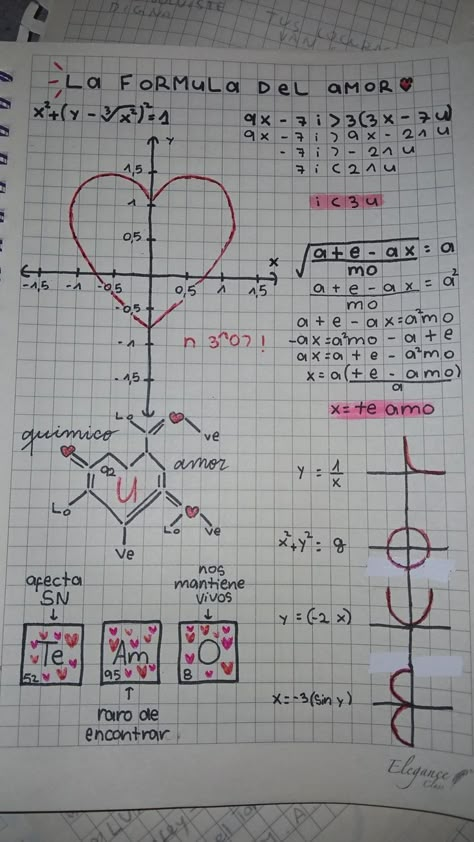 LA FORMULA DEL AMOR
x²+(y - ∛x²)²=1
Y
1,5
1
0,5
x
-1,5
-1
-0,5
0,5
1
1,5
-0,5
-1
-1,5
n 3^07!
9x - 7i > 3(3x - 7u)
9x - 7i > 9x - 21u
- 7i > - 21u
7i < 21u
i < 3u
√(a + e - ax)/mo = a
(a + e - ax)/mo = a²
a + e - ax = a²mo
-ax = a²mo - a + e
ax = a + e - a²mo
x = a(+e - amo)/a
x = te amo
quimico
amor
Lo
ve
U
Lo
ve
Lo
ve
y = 1/x
x²+y² = 9
y = (-2 x)
x = -3(sin y)
afecta
SN
Te
52
Am
95
raro de
encontrar
nos
mantiene
vivos
O
8
Elegance